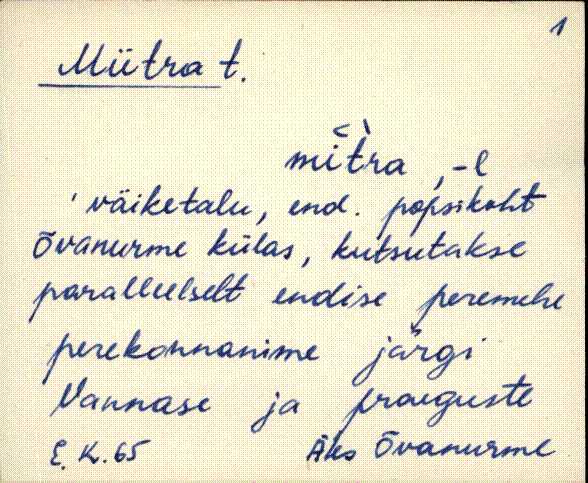 1
Miitra t.
mì͔tra, -l
' väiketalu, end. popsikoht
Õvanurme külas, kutsutakse
paralleelselt endise peremehe
perekonnanime järgi
Vannase ja praeguste
E. K. 65 Äks Õvanurme